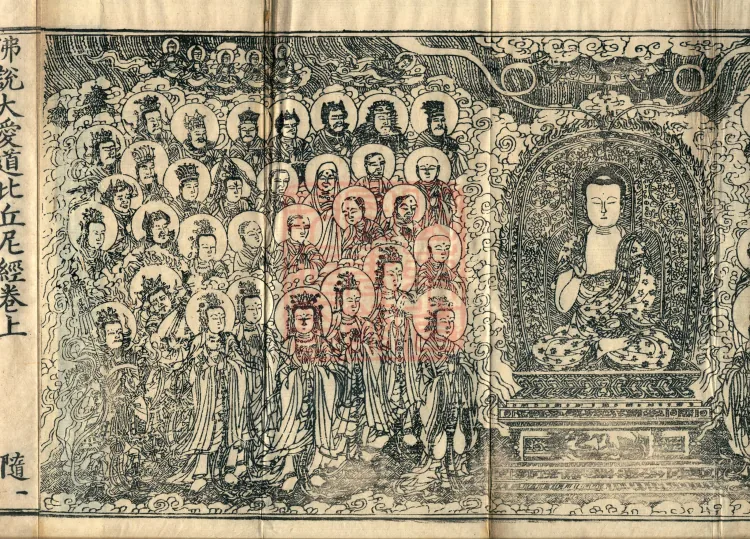 佛說大愛道比丘尼經卷上
隨一